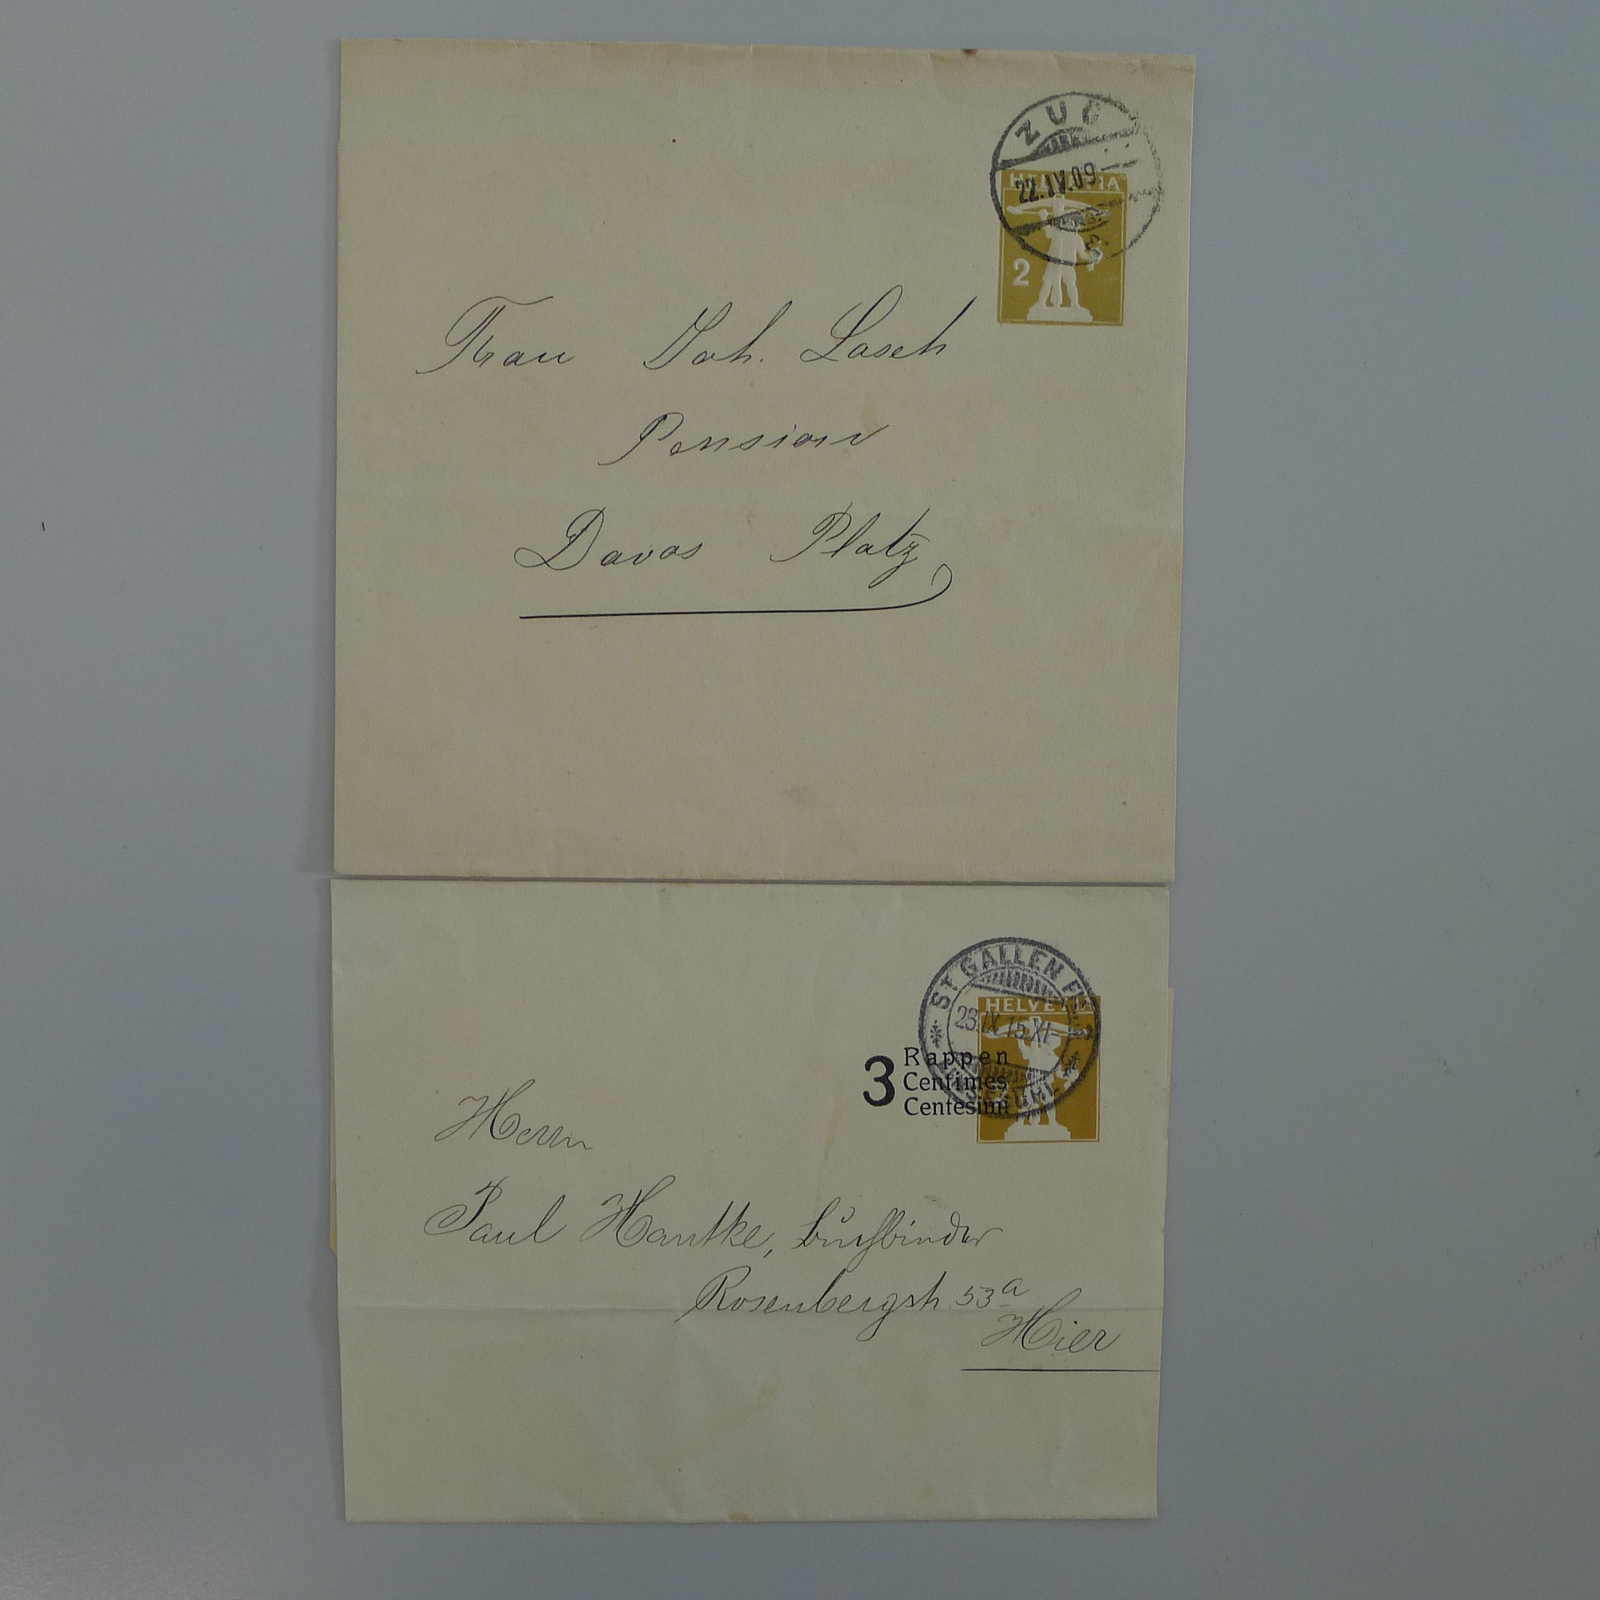 ZUG
22.IV.09
HELVETIA
2
Frau Joh. Lasch
Pension
Davos Platz
ST. GALLEN
HELVETIA
23.IX.15.XI
3 Rappen
Centimes
Centesimi
Herrn
Paul Hantke, Buchbinder
Rosenbergstr. 53a
Hier